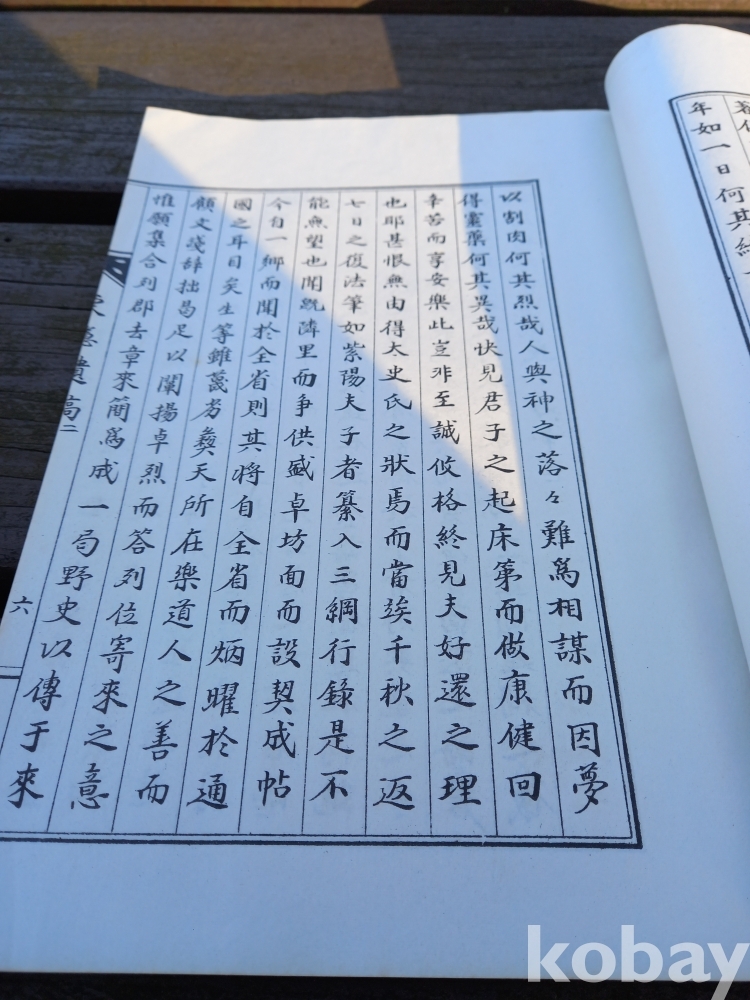 年如一日何其
以割肉何其烈哉人與神之落々難爲相謀而因夢
得靈藥何其異哉快見君子之起床第而做康健回
辛苦而享安樂此豈非至誠攸格終見夫好還之理
也耶甚恨無由得太史氏之狀焉而當竢千秋之返
七日之復法筆如紫陽夫子者纂入三綱行錄是不
能無望也閭巷隣里而爭供盛卓坊面而設契成帖
今自一鄉而聞於全省則其將自全省而炳曜於通
國之耳目矣生等雖蔑劣彜天所在樂道人之善而
顧文淺辞拙曷足以闡揚卓烈而答列位寄來之意
惟願集合列郡去章來簡爲成一局野史以傳于來
遺高二
六
kobay